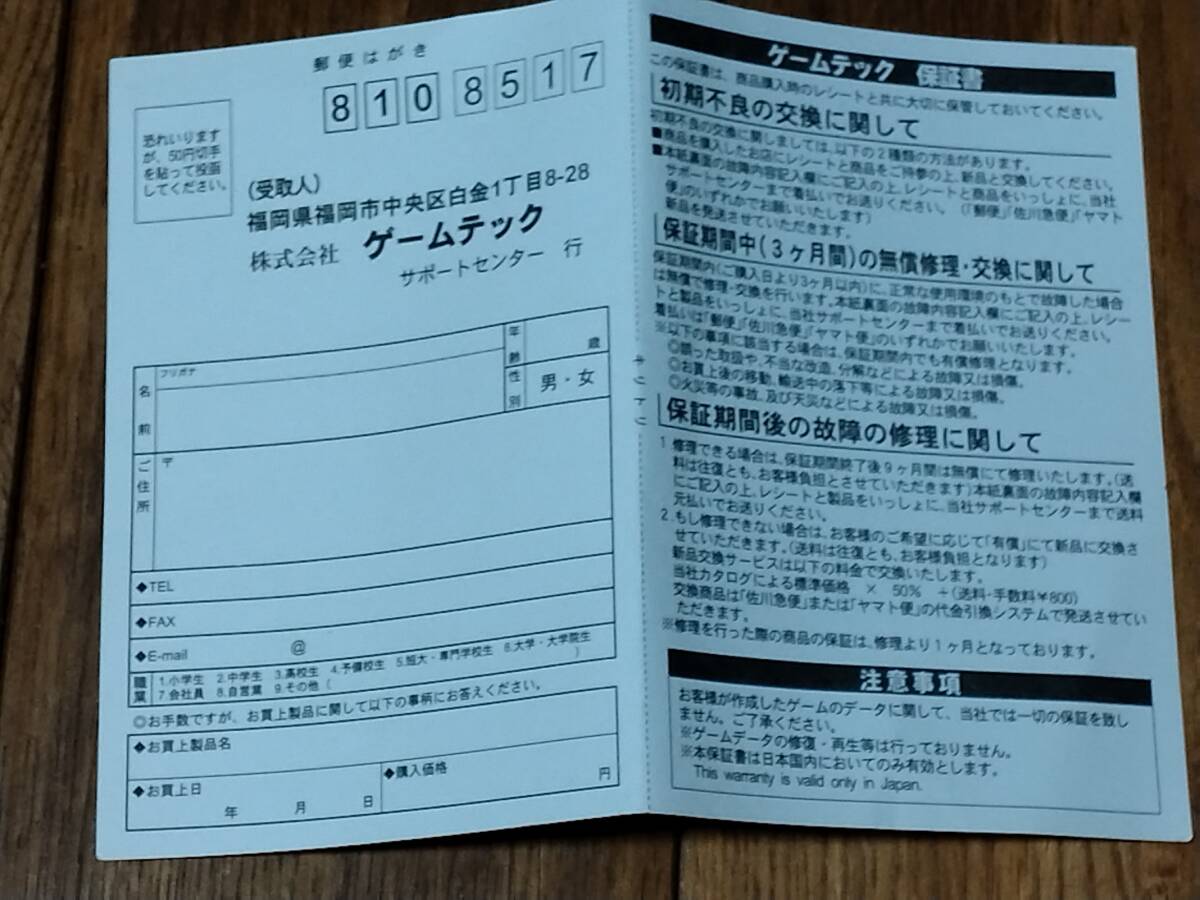 郵便はがき
8108517
恐れいります
が、50円切手
を貼って投函
してください。
(受取人)
福岡県福岡市中央区白金1丁目8-28
株式会社 ゲームテック
サポートセンター 行
フリガナ
名前
年齢
歳
性別
男・女
ご住所
〒
◆TEL
◆FAX
◆E-mail @
職業
1.小学生 2.中学生 3.高校生 4.予備校生 5.短大・専門学校生 6.大学・大学院生
7.会社員 8.自営業 9.その他 ( )
◎お手数ですが、お買上製品に関して以下の事柄にお答えください。
◆お買上製品名
◆お買上日
年 月 日
◆購入価格
円
キリトリ
ゲームテック 保証書
この保証書は、商品購入時のレシートと共に大切に保管しておいてください。
初期不良の交換に関して
初期不良の交換に関しましては、以下の2種類の方法があります。
■商品を購入したお店にレシートと商品をご持参の上、新品と交換してください。
■本紙裏面の故障内容記入欄にご記入の上、レシートと商品をいっしょに、当社
サポートセンターまで着払いでお送りください。(「郵便」「佐川急便」「ヤマト
便」のいずれかでお願いいたします)
新品を発送させていただきます。
保証期間中(3ヶ月間)の無償修理・交換に関して
保証期間内(ご購入日より3ヶ月以内)に、正常な使用環境のもとで故障した場合
は無償で修理・交換を行います。本紙裏面の故障内容記入欄にご記入の上、レシー
トと製品をいっしょに、当社サポートセンターまで着払いでお送りください。
着払いは「郵便」「佐川急便」「ヤマト便」のいずれかでお願いいたします。
※以下の事項に該当する場合は、保証期間内でも有償修理となります。
◎誤った取扱や、不当な改造、分解などによる故障又は損傷。
◎お買上後の移動、輸送中の落下等による故障又は損傷。
◎火災等の事故、及び天災などによる故障又は損傷。
保証期間後の故障の修理に関して
1.修理できる場合は、保証期間終了後9ヶ月間は無償にて修理いたします。(送
料は往復とも、お客様負担とさせていただきます)本紙裏面の故障内容記入欄
にご記入の上、レシートと製品をいっしょに、当社サポートセンターまで送料
元払いでお送りください。
2.もし修理できない場合は、お客様のご希望に応じて「有償」にて新品に交換さ
せていただきます。(送料は往復とも、お客様負担となります)
新品交換サービスは以下の料金で交換いたします。
当社カタログによる標準価格 × 50% +(送料・手数料¥800)
交換商品は「佐川急便」または「ヤマト便」の代金引換システムで発送させてい
ただきます。
※修理を行った際の商品の保証は、修理より1ヶ月となっております。
注意事項
お客様が作成したゲームのデータに関して、当社では一切の保証を致し
ません。ご了承ください。
※ゲームデータの修復・再生等は行っておりません。
※本保証書は日本国内においてのみ有効とします。
This warranty is valid only in Japan.